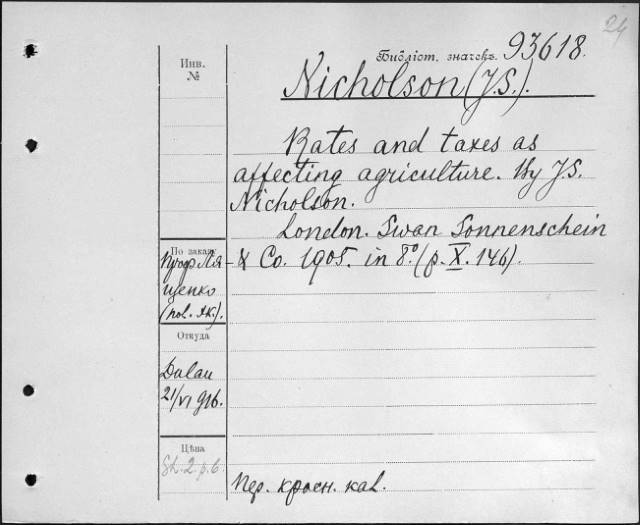 24
Инв.
№
Библіот. значекъ. 93618.
Nicholson (J.S.).
Rates and taxes as
affecting agriculture. By J.S.
Nicholson.
London. Swan Sonnenschein
& Co. 1905. in 8º. (p. X. 146).
По заказу
проф. Ля-
щенко
(pol. эк.).
Откуда
Dulau
21/VI 916.
Цѣна
Sh. 2 p. 6.
Пер. красн. kal.